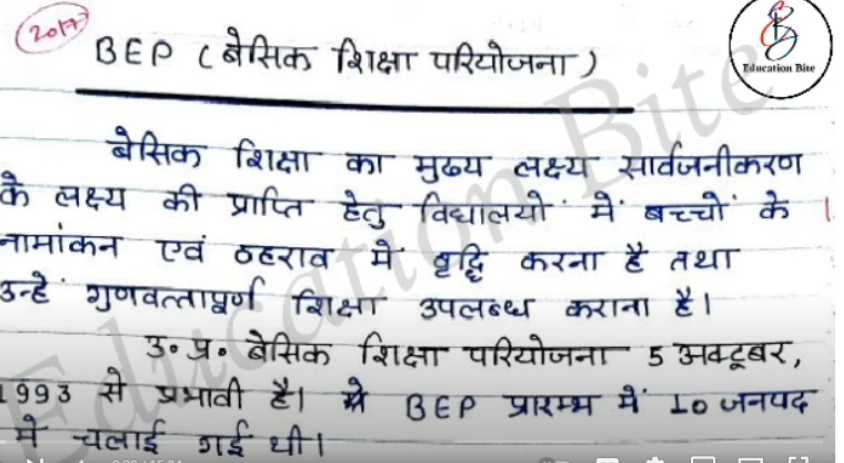 2017
BEP (बेसिक शिक्षा परियोजना)
Education Bite
बेसिक शिक्षा का मुख्य लक्ष्य सार्वजनीकरण
के लक्ष्य की प्राप्ति हेतु विधालयों में बच्चों के
नामांकन एवं ठहराव में बृद्धि करना है तथा
उन्हें गुणवत्तापूर्ण शिक्षा उपलब्ध कराना है।
उ॰ प्र॰ बेसिक शिक्षा परियोजना 5 अक्टूबर,
1993 से प्रभावी है। BEP प्रारम्भ में 10 जनपद
में चलाई गई थी।
Education Bite